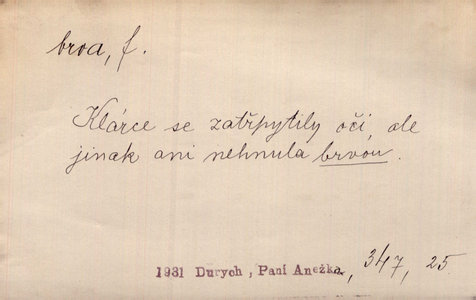 brva, f.
Klárce se zatřpytily oči, ale
jinak ani nehnula brvou.
1931 Durych, Paní Anežka, 347, 25